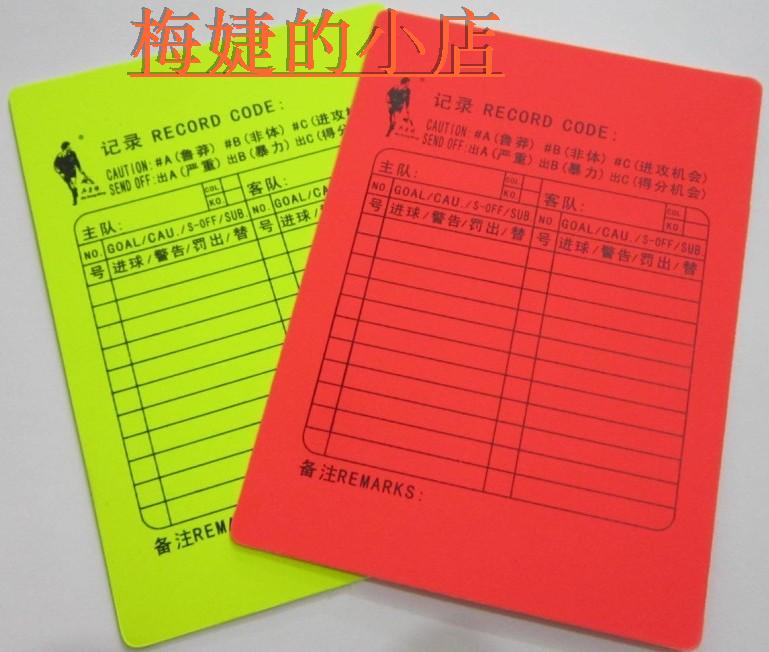 梅婕的小店
记录 RECORD CODE:
CAUTION:#A(鲁莽) #B(非体) #C(进攻机
SEND OFF:出A(严重) 出B(暴力) 出C(得分
主队: COL KO. 客队:
NO. GOAL/CAU./S-OFF/SUB. NO. GOAL/CA
号 进球/警告/罚出/替 号 进球/
备注REMA
记录 RECORD CODE:
CAUTION: #A(鲁莽) #B(非体) #C(进攻机会)
SEND OFF:出A(严重) 出B(暴力) 出C(得分机会)
主队: COL KO. 客队: COL KO.
NO. GOAL/CAU./S-OFF/SUB. NO. GOAL/CAU./S-OFF/SUB.
号 进球/警告/罚出/替 号 进球/警告/罚出/替
备注REMARKS: